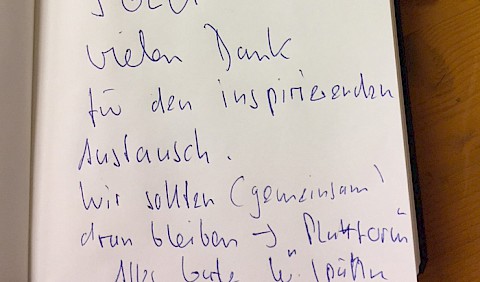 vielen Dank
für den inspirierenden
Austausch.
Wir sollten (gemeinsam)
dran bleiben → Plattform
Alles Gute